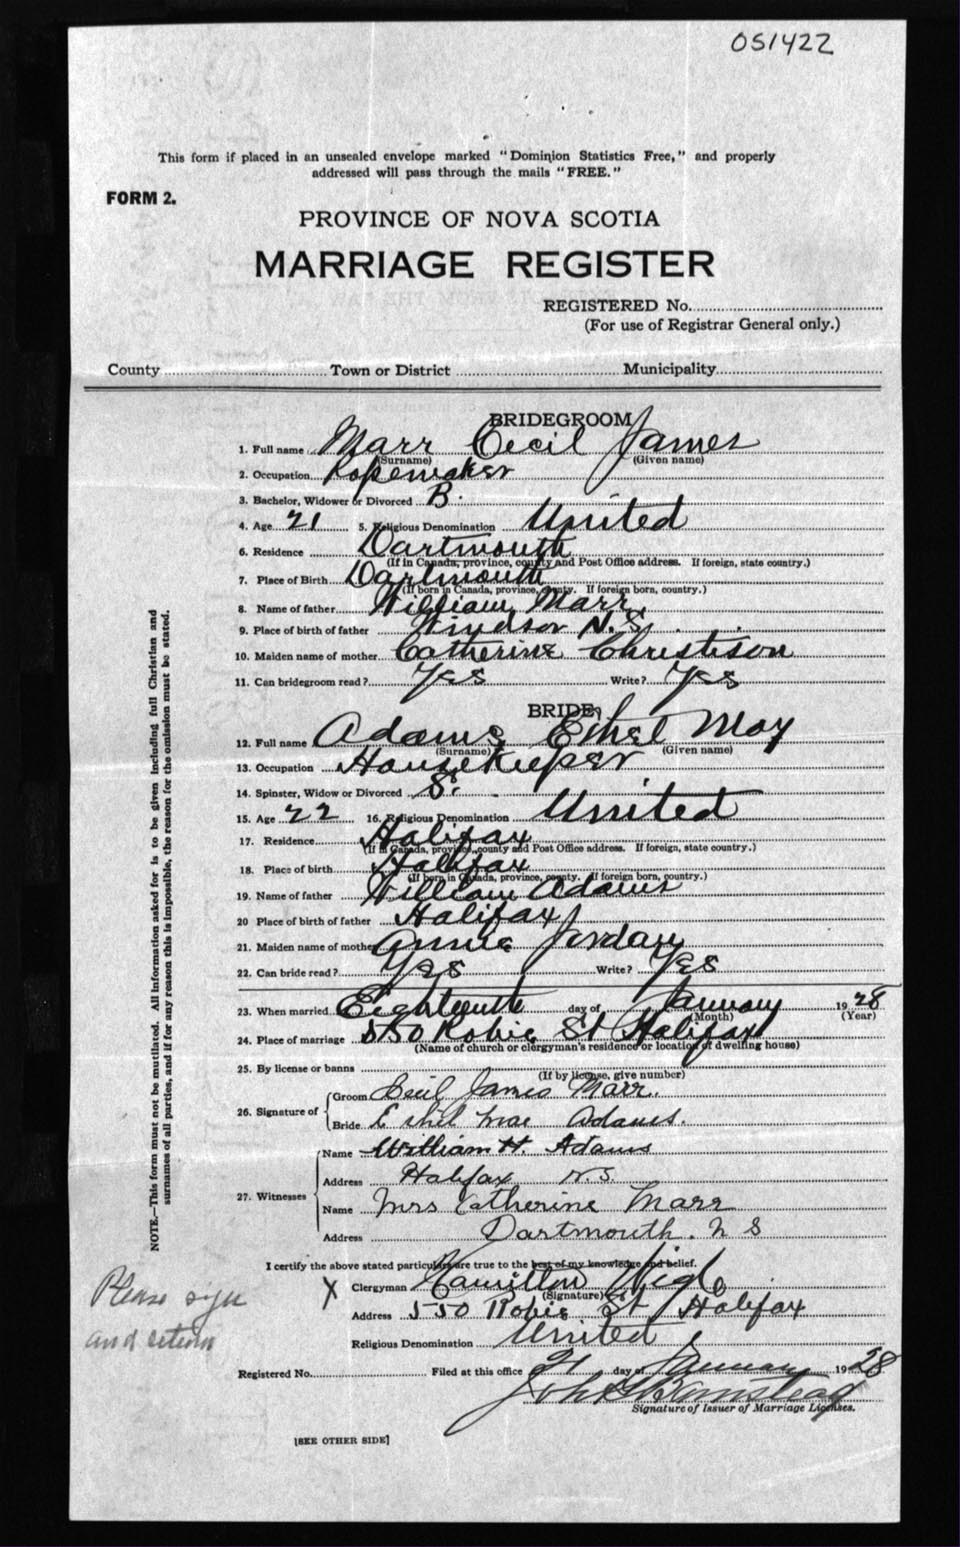 051422
This form if placed in an unsealed envelope marked "Dominion Statistics Free," and properly
addressed will pass through the mails "FREE."
FORM 2.
PROVINCE OF NOVA SCOTIA
MARRIAGE REGISTER
REGISTERED No.
(For use of Registrar General only.)
County Town or District Municipality
BRIDEGROOM
1. Full name Marr Cecil James
(Surname) (Given name)
2. Occupation Ropemaker
3. Bachelor, Widower or Divorced B.
4. Age 21 5. Religious Denomination United
6. Residence Dartmouth
(If in Canada, province, county and Post Office address. If foreign, state country.)
7. Place of Birth Dartmouth
(If born in Canada, province, county. If foreign born, country.)
8. Name of father William Marr
9. Place of birth of father Windsor N.S.
10. Maiden name of mother Catherine Christison
11. Can bridegroom read? Yes Write? Yes
BRIDE
12. Full name Adams Ethel May
(Surname) (Given name)
13. Occupation Housekeeper
14. Spinster, Widow or Divorced S.
15. Age 22 16. Religious Denomination United
17. Residence Halifax
(If in Canada, province, county and Post Office address. If foreign, state country.)
18. Place of birth Halifax
(If born in Canada, province, county. If foreign born, country.)
19. Name of father William Adams
20 Place of birth of father Halifax
21. Maiden name of mother Annie Jordan
22. Can bride read? Yes Write? Yes
23. When married Eighteenth day of January 1928
(Month) (Year)
24. Place of marriage 550 Robie St Halifax
(Name of church or clergyman's residence or location of dwelling house)
25. By license or banns
(If by license, give number)
26. Signature of
Groom Cecil James Marr.
Bride Ethel Mae Adams.
27. Witnesses
Name William H. Adams
Address Halifax N.S.
Name Mrs Catherine Marr
Address Dartmouth. N S
I certify the above stated particulars are true to the best of my knowledge and belief.
X Clergyman Hamilton Wigle
(Signature)
Address 550 Robie St Halifax
Religious Denomination United
Please sign
and return
Registered No. Filed at this office 21 day of January 1928
John
Signature of Issuer of Marriage Licenses.
[SEE OTHER SIDE]
NOTE.—This form must not be mutilated. All information asked for is to be given including full Christian and
surnames of all parties, and if for any reason this is impossible, the reason for the omission must be stated.